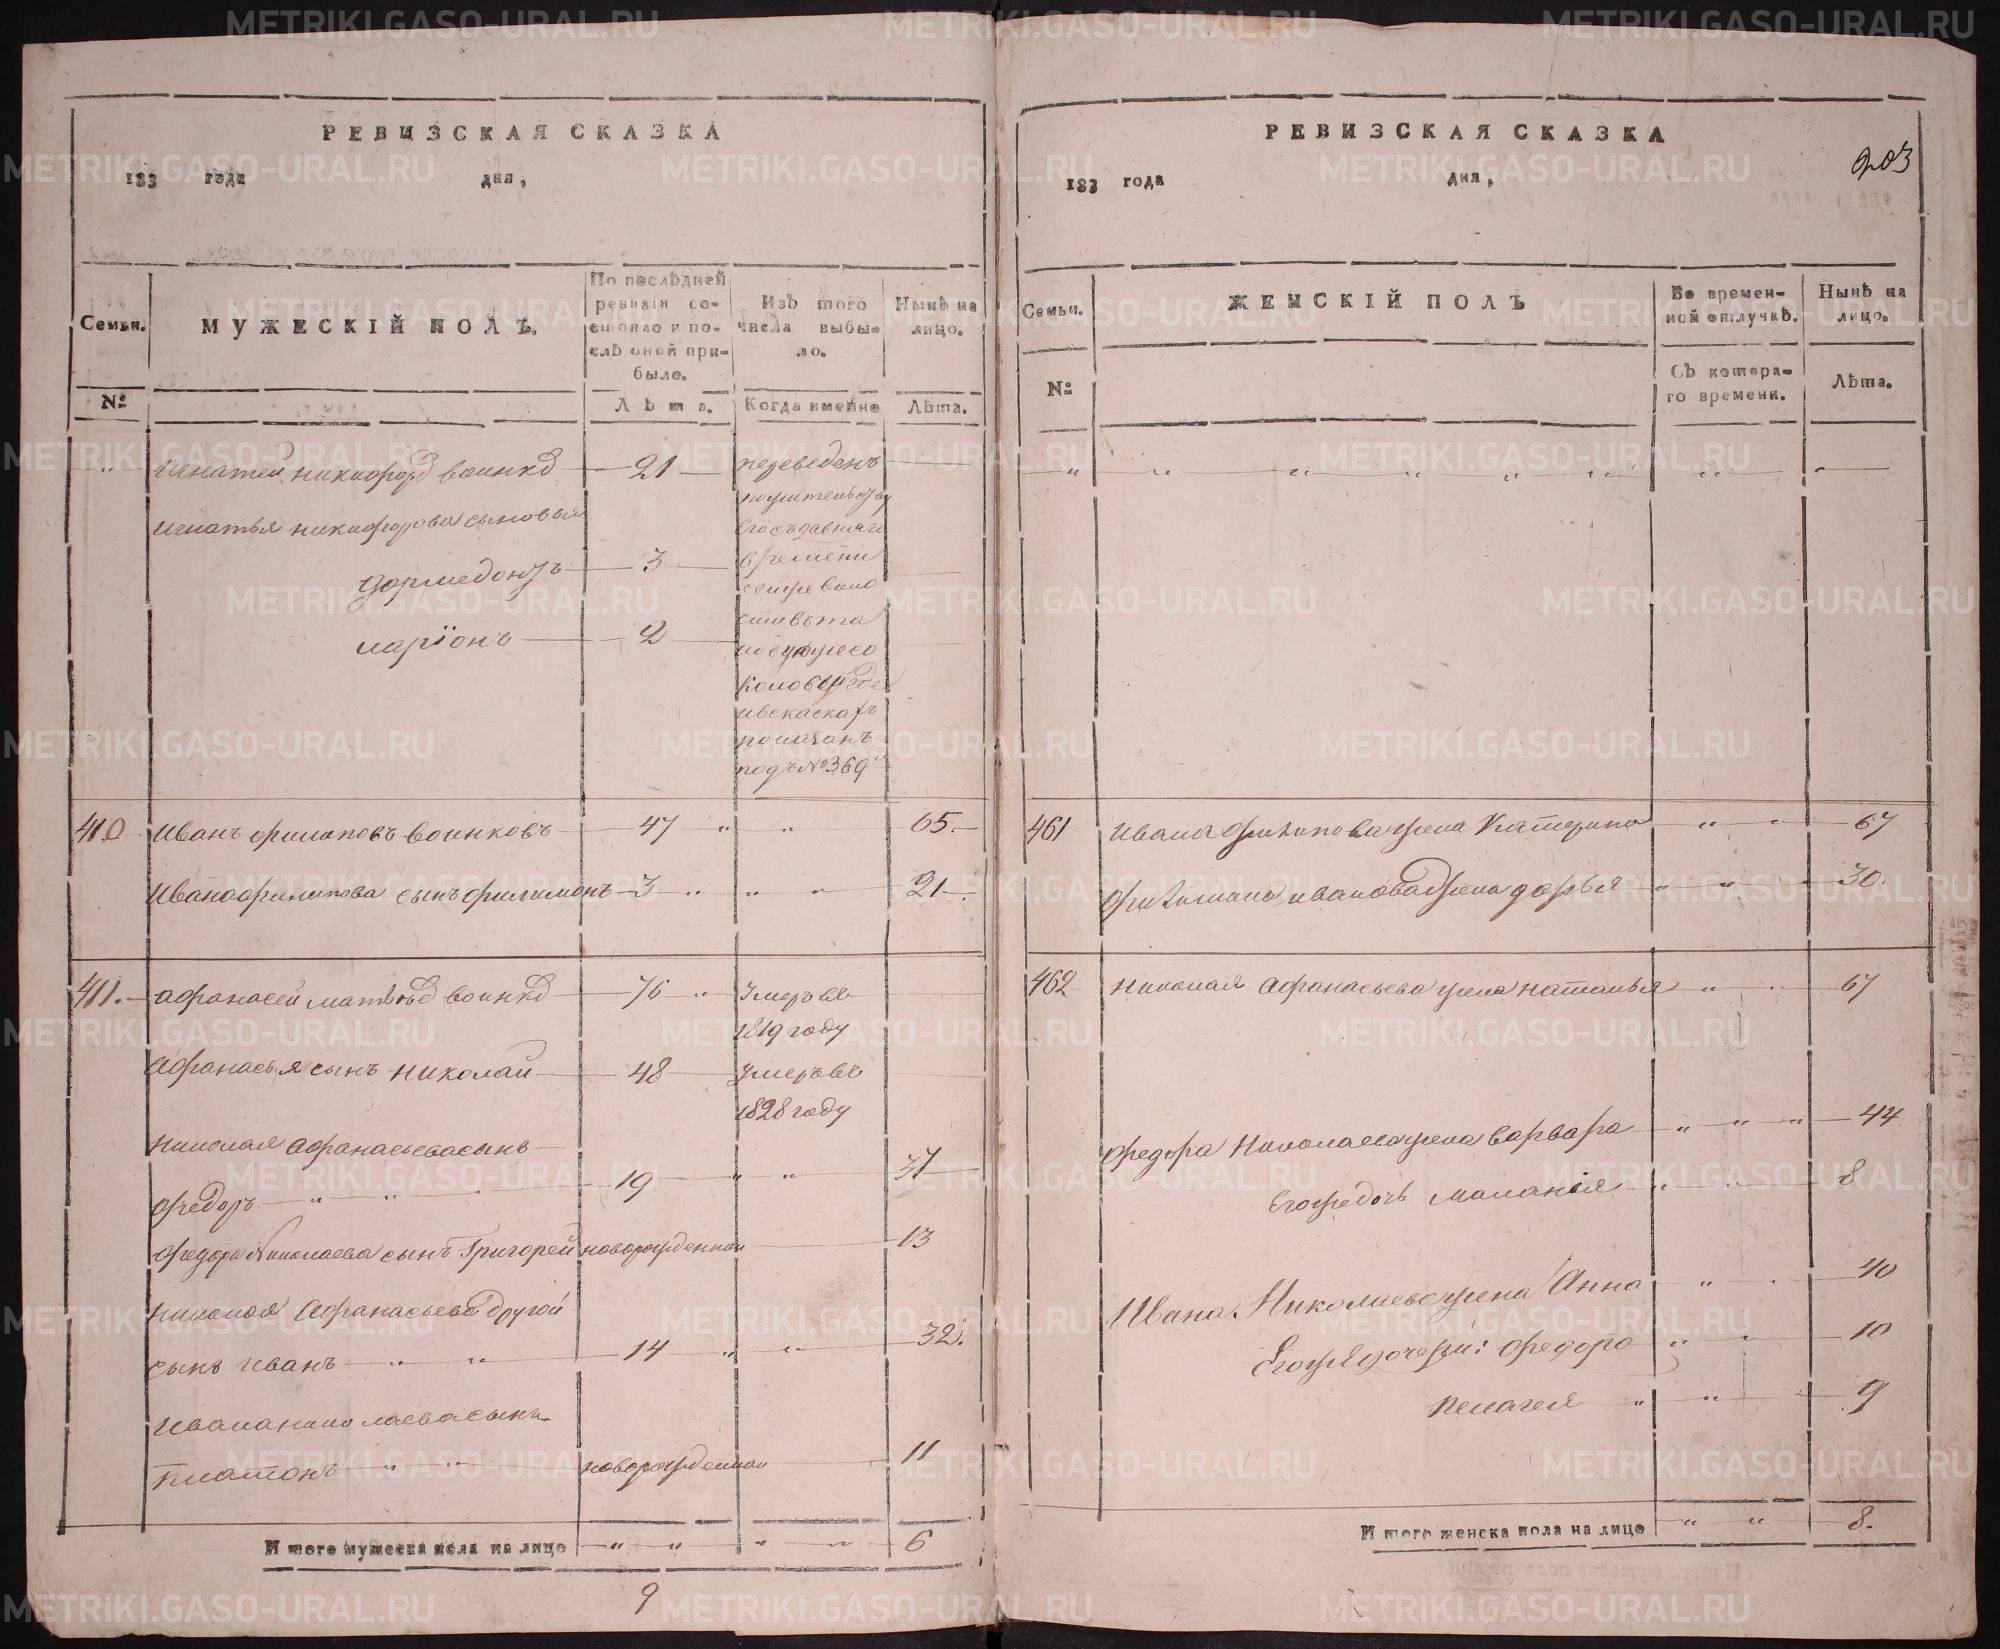 РЕВИЗСКАЯ СКАЗКА
183 года дня,
Семьи.
МУЖЕСКІЙ ПОЛЪ.
По послѣдней ревизіи состояло и послѣ оной прибыло.
Изъ того числа выбыло.
Нынѣ на лицо.
№
Лѣта.
Когда имянно
Лѣта.
Игнатей никифоровъ воинковъ 21 переведенъ
Игнатья никифорова сыновья
3 времени
ларіонъ 2
показанъ
подъ № 369
410 Иванъ филиповъ воинковъ 47 " " 65.
Ивана филипова сынъ филимонъ 3 " " " 21.
411. афанасей матвѣевъ воинковъ 76 " Умеръ въ
1819 году
Афанасья сынъ николай 48 Умеръ въ
1828 году
николая афанасьева сынъ
федоръ " " 19 " " 37
федора Николаева сынъ Григорей новорожденной 13
николая Афанасьева другой
сынъ иванъ " " 14 " " 32.
ивана николаева сынъ
платонъ " " новорожденной 11
Итого мужеска пола на лицо " " " " 6
9
РЕВИЗСКАЯ СКАЗКА
183 года дня,
Семьи.
ЖЕНСКІЙ ПОЛЪ
Во временной отлучкѣ.
Нынѣ на лицо.
№
Съ котораго времени.
Лѣта.
461 ивана филипова жена Катерина " 67
филимона иванова жена дарья " " 30.
462 николая афанасьева жена наталья " 67
федора николаева жена варвара " " " 44
Его ж дочь маланья " 8
Ивана Николаева жена Анна " 40
Его ж дочери: федора " 10
пелагея " " 9
Итого женска пола на лицо " " 8.